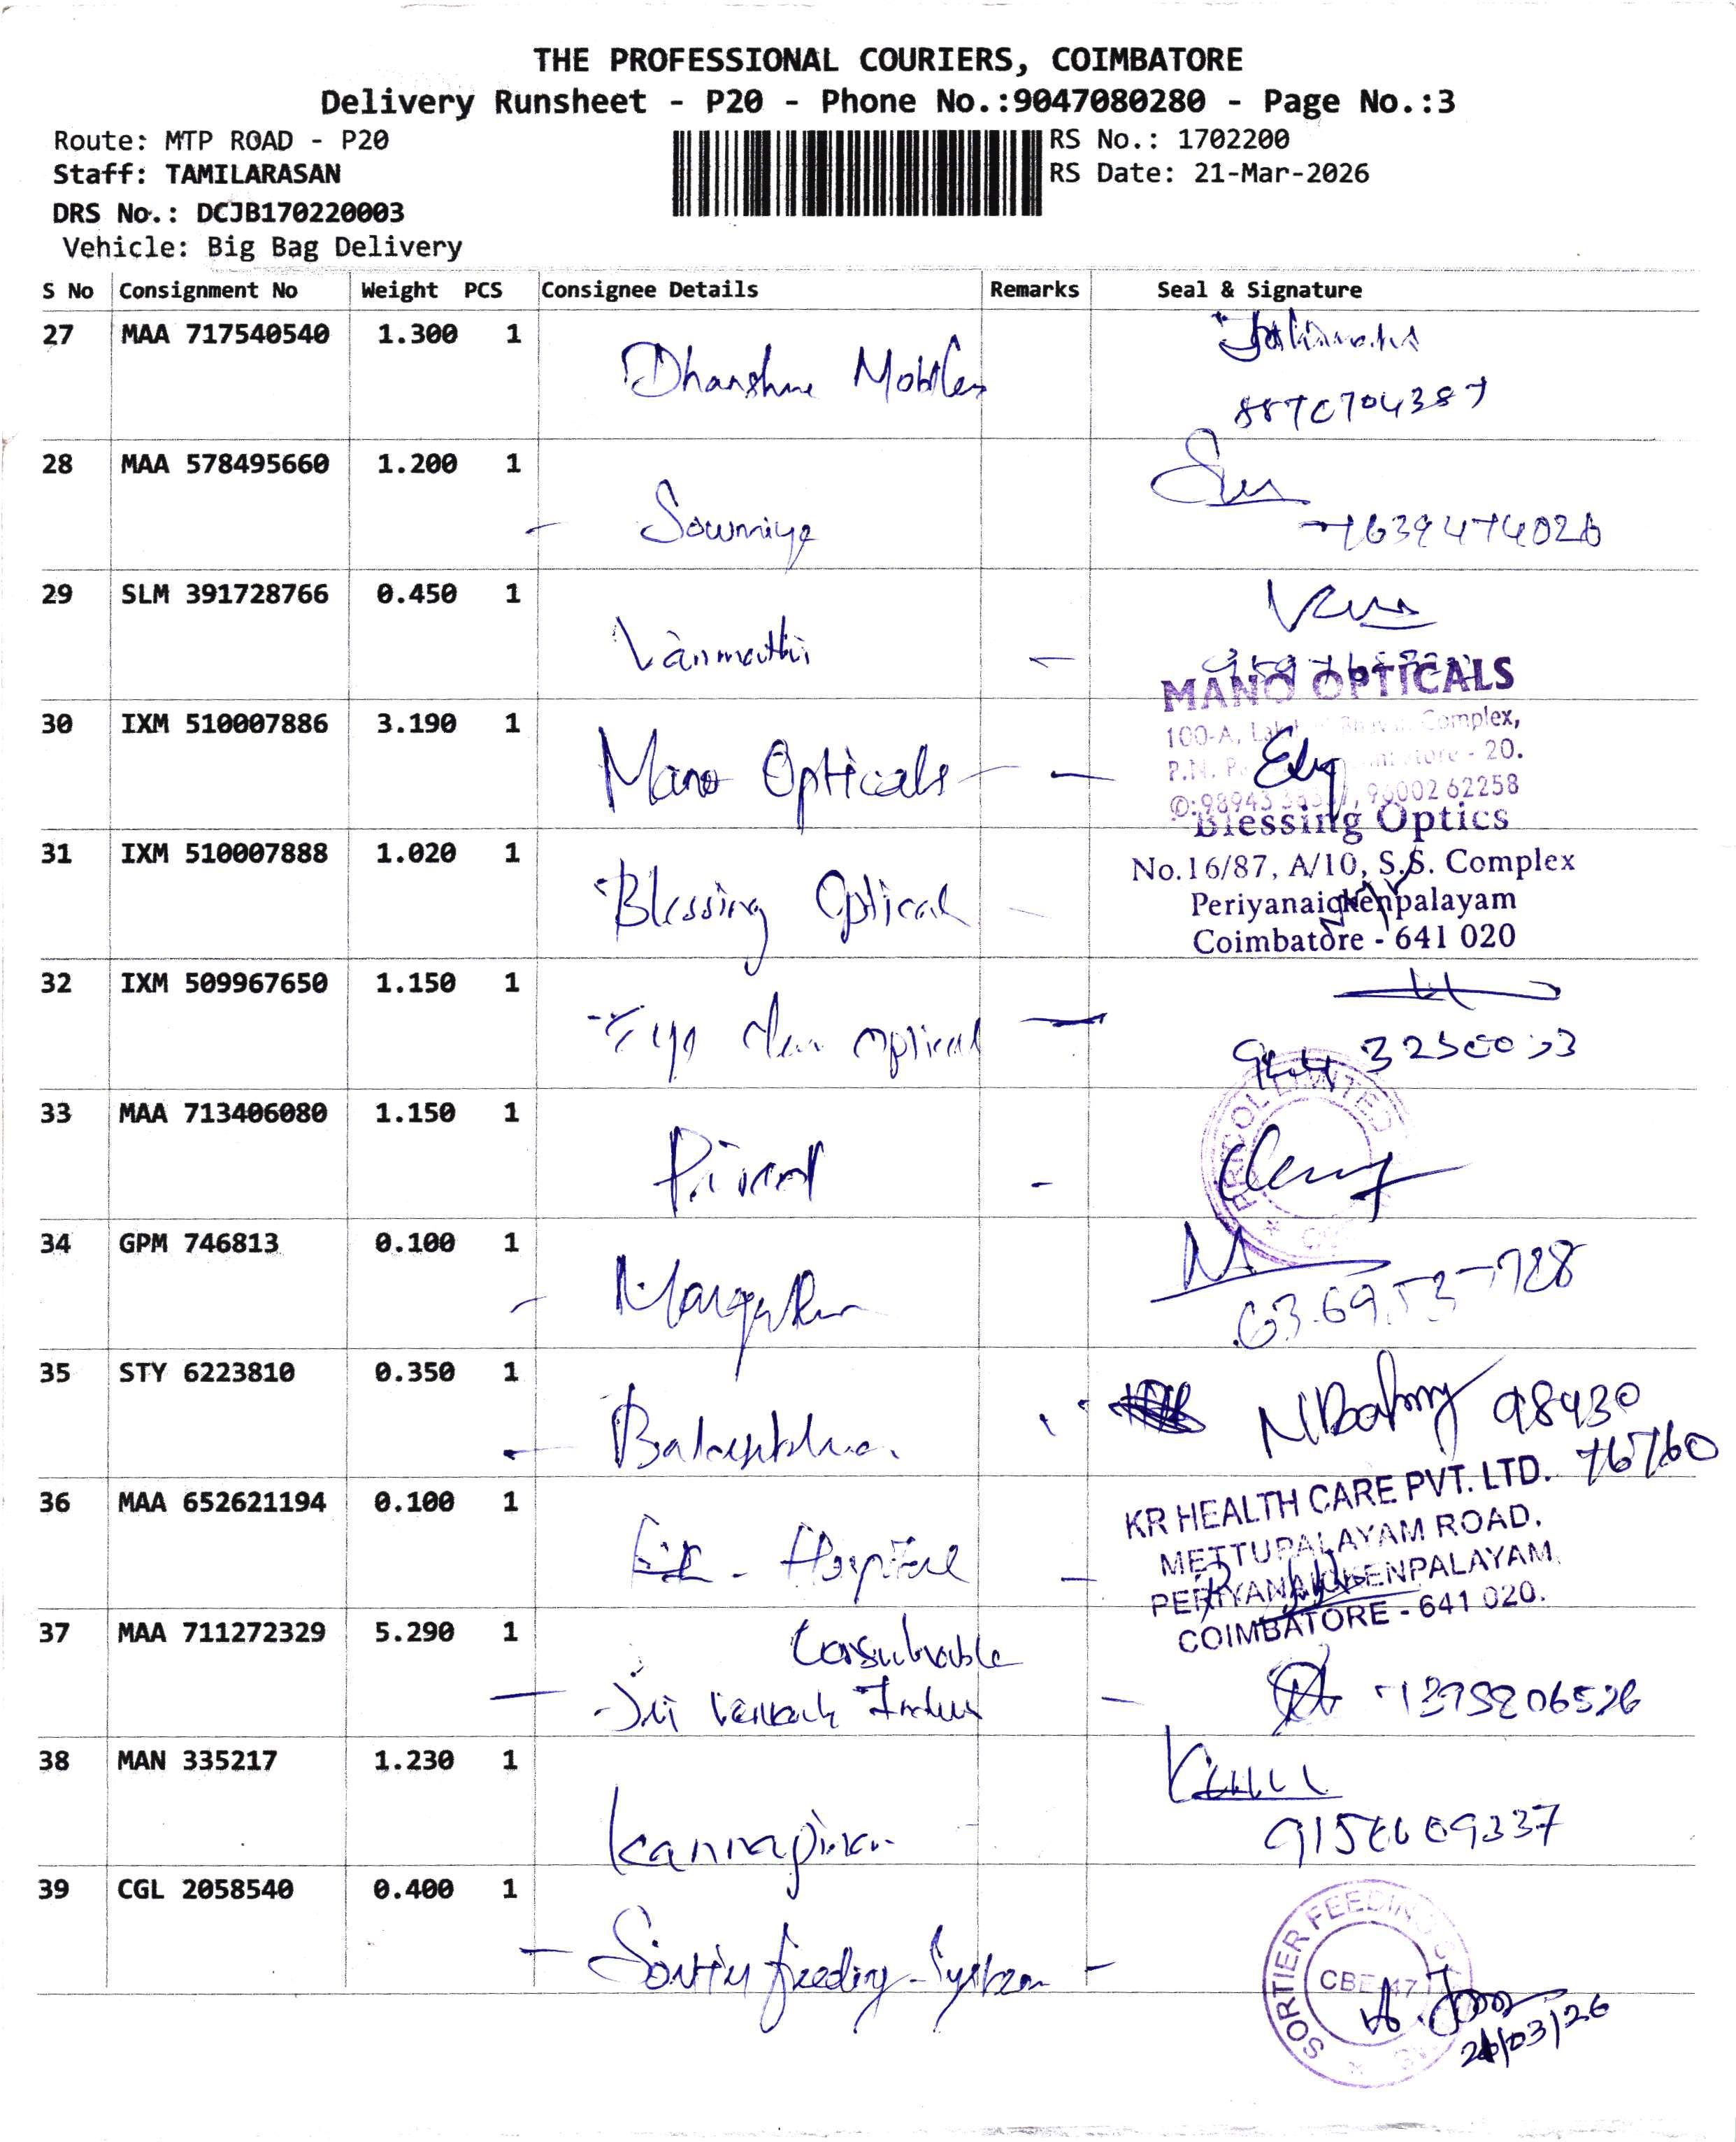 THE PROFESSIONAL COURIERS, COIMBATORE
Delivery Runsheet - P20 - Phone No.:9047080280 - Page No.:3
Route: MTP ROAD - P20
RS No.: 1702200
Staff: TAMILARASAN
RS Date: 21-Mar-2026
DRS No.: DCJB170220003
Vehicle: Big Bag Delivery
S No Consignment No Weight PCS Consignee Details Remarks Seal & Signature
27 MAA 717540540 1.300 1
Dhanshree Mobiles
28 MAA 578495660 1.200 1
Sowmiya
7639474026
29 SLM 391728766 0.450 1
Vanmathi
MANO OPTICALS
30 IXM 510007886 3.190 1
Complex,
100-A,
- 20.
Mano Opticals
96002 62258
Blessing Optics
31 IXM 510007888 1.020 1
No.16/87, A/10, S.S. Complex
Blessing Optical
Periyanaickenpalayam
Coimbatore - 641 020
32 IXM 509967650 1.150 1
Eye clear optical
33 MAA 713406080 1.150 1
LIMITED
34 GPM 746813 0.100 1
35 STY 6223810 0.350 1
98430
76760
36 MAA 652621194 0.100 1
KR HEALTH CARE PVT. LTD.
METTUPALAYAM ROAD.
Hospital
PERIYANAICKENPALAYAM
COIMBATORE - 641 020.
37 MAA 711272329 5.290 1
Sri
38 MAN 335217 1.230 1
Kannapiran
39 CGL 2058540 0.400 1
SORTIER FEEDING
CBE-47
Sortier feeding System
21/03/26